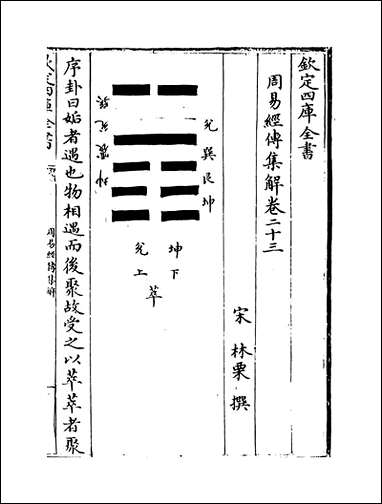 欽定四庫全書
周易經傳集解卷二十三
宋 林栗 撰
兌 巽 艮 坤
坤下
兌上
萃
序卦曰姤者遇也物相遇而後聚故受之以萃萃者聚
欽定四庫全書
周易經傳集解